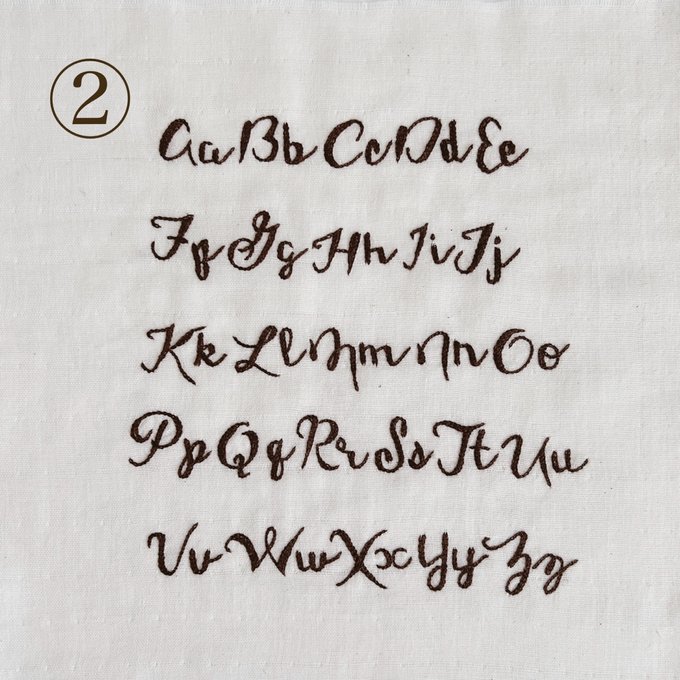 ②
Aa Bb Cc Dd Ee
Ff Gg Hh Ii Jj
Kk Ll Mm Nn Oo
Pp Qq Rr Ss Tt Uu
Vv Ww Xx Yy Zz